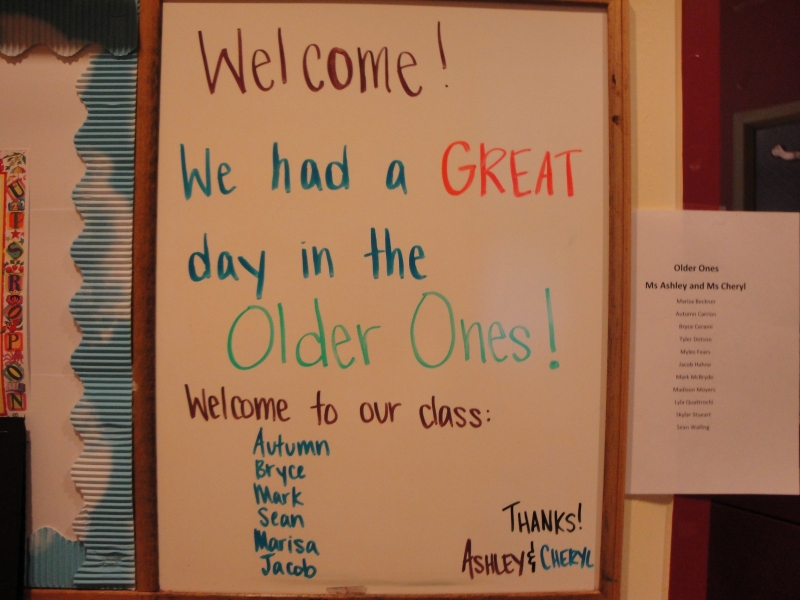 Welcome!
We had a GREAT
day in the
Older Ones!
Welcome to our class:
Autumn
Bryce
Mark
Sean
Marisa
Jacob
THANKS!
ASHLEY & CHERYL
Older Ones
Ms Ashley and Ms Cheryl
Marisa
Autumn
Bryce
Tyler
Myles Fears
Jacob
Mark McBryde
Madison
Lyla Quattrochi
Skylar Stewart
Sean Walling